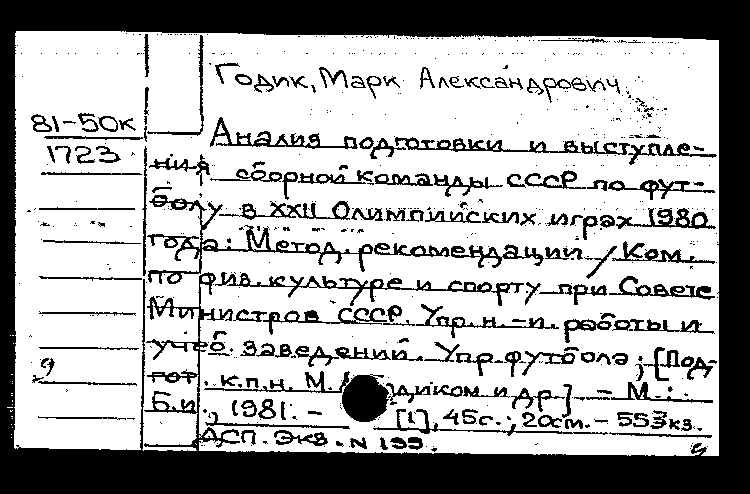 Годик, Марк Александрович.
81-50к
1723
Анализ подготовки и выступле-
ния сборной команды СССР по фут-
болу в XXII Олимпийских играх 1980
года: Метод. рекомендации / Ком.
по физ. культуре и спорту при Совете
Министров СССР. Упр. н.-и. работы и
учеб. заведений. Упр. футбола; [Под-
гот. к.п.н. М. Годиком и др.] - М.:
Б.и., 1981. - [1], 45с.; 20см. - 553кз.
ДСП. Экз. N 199.